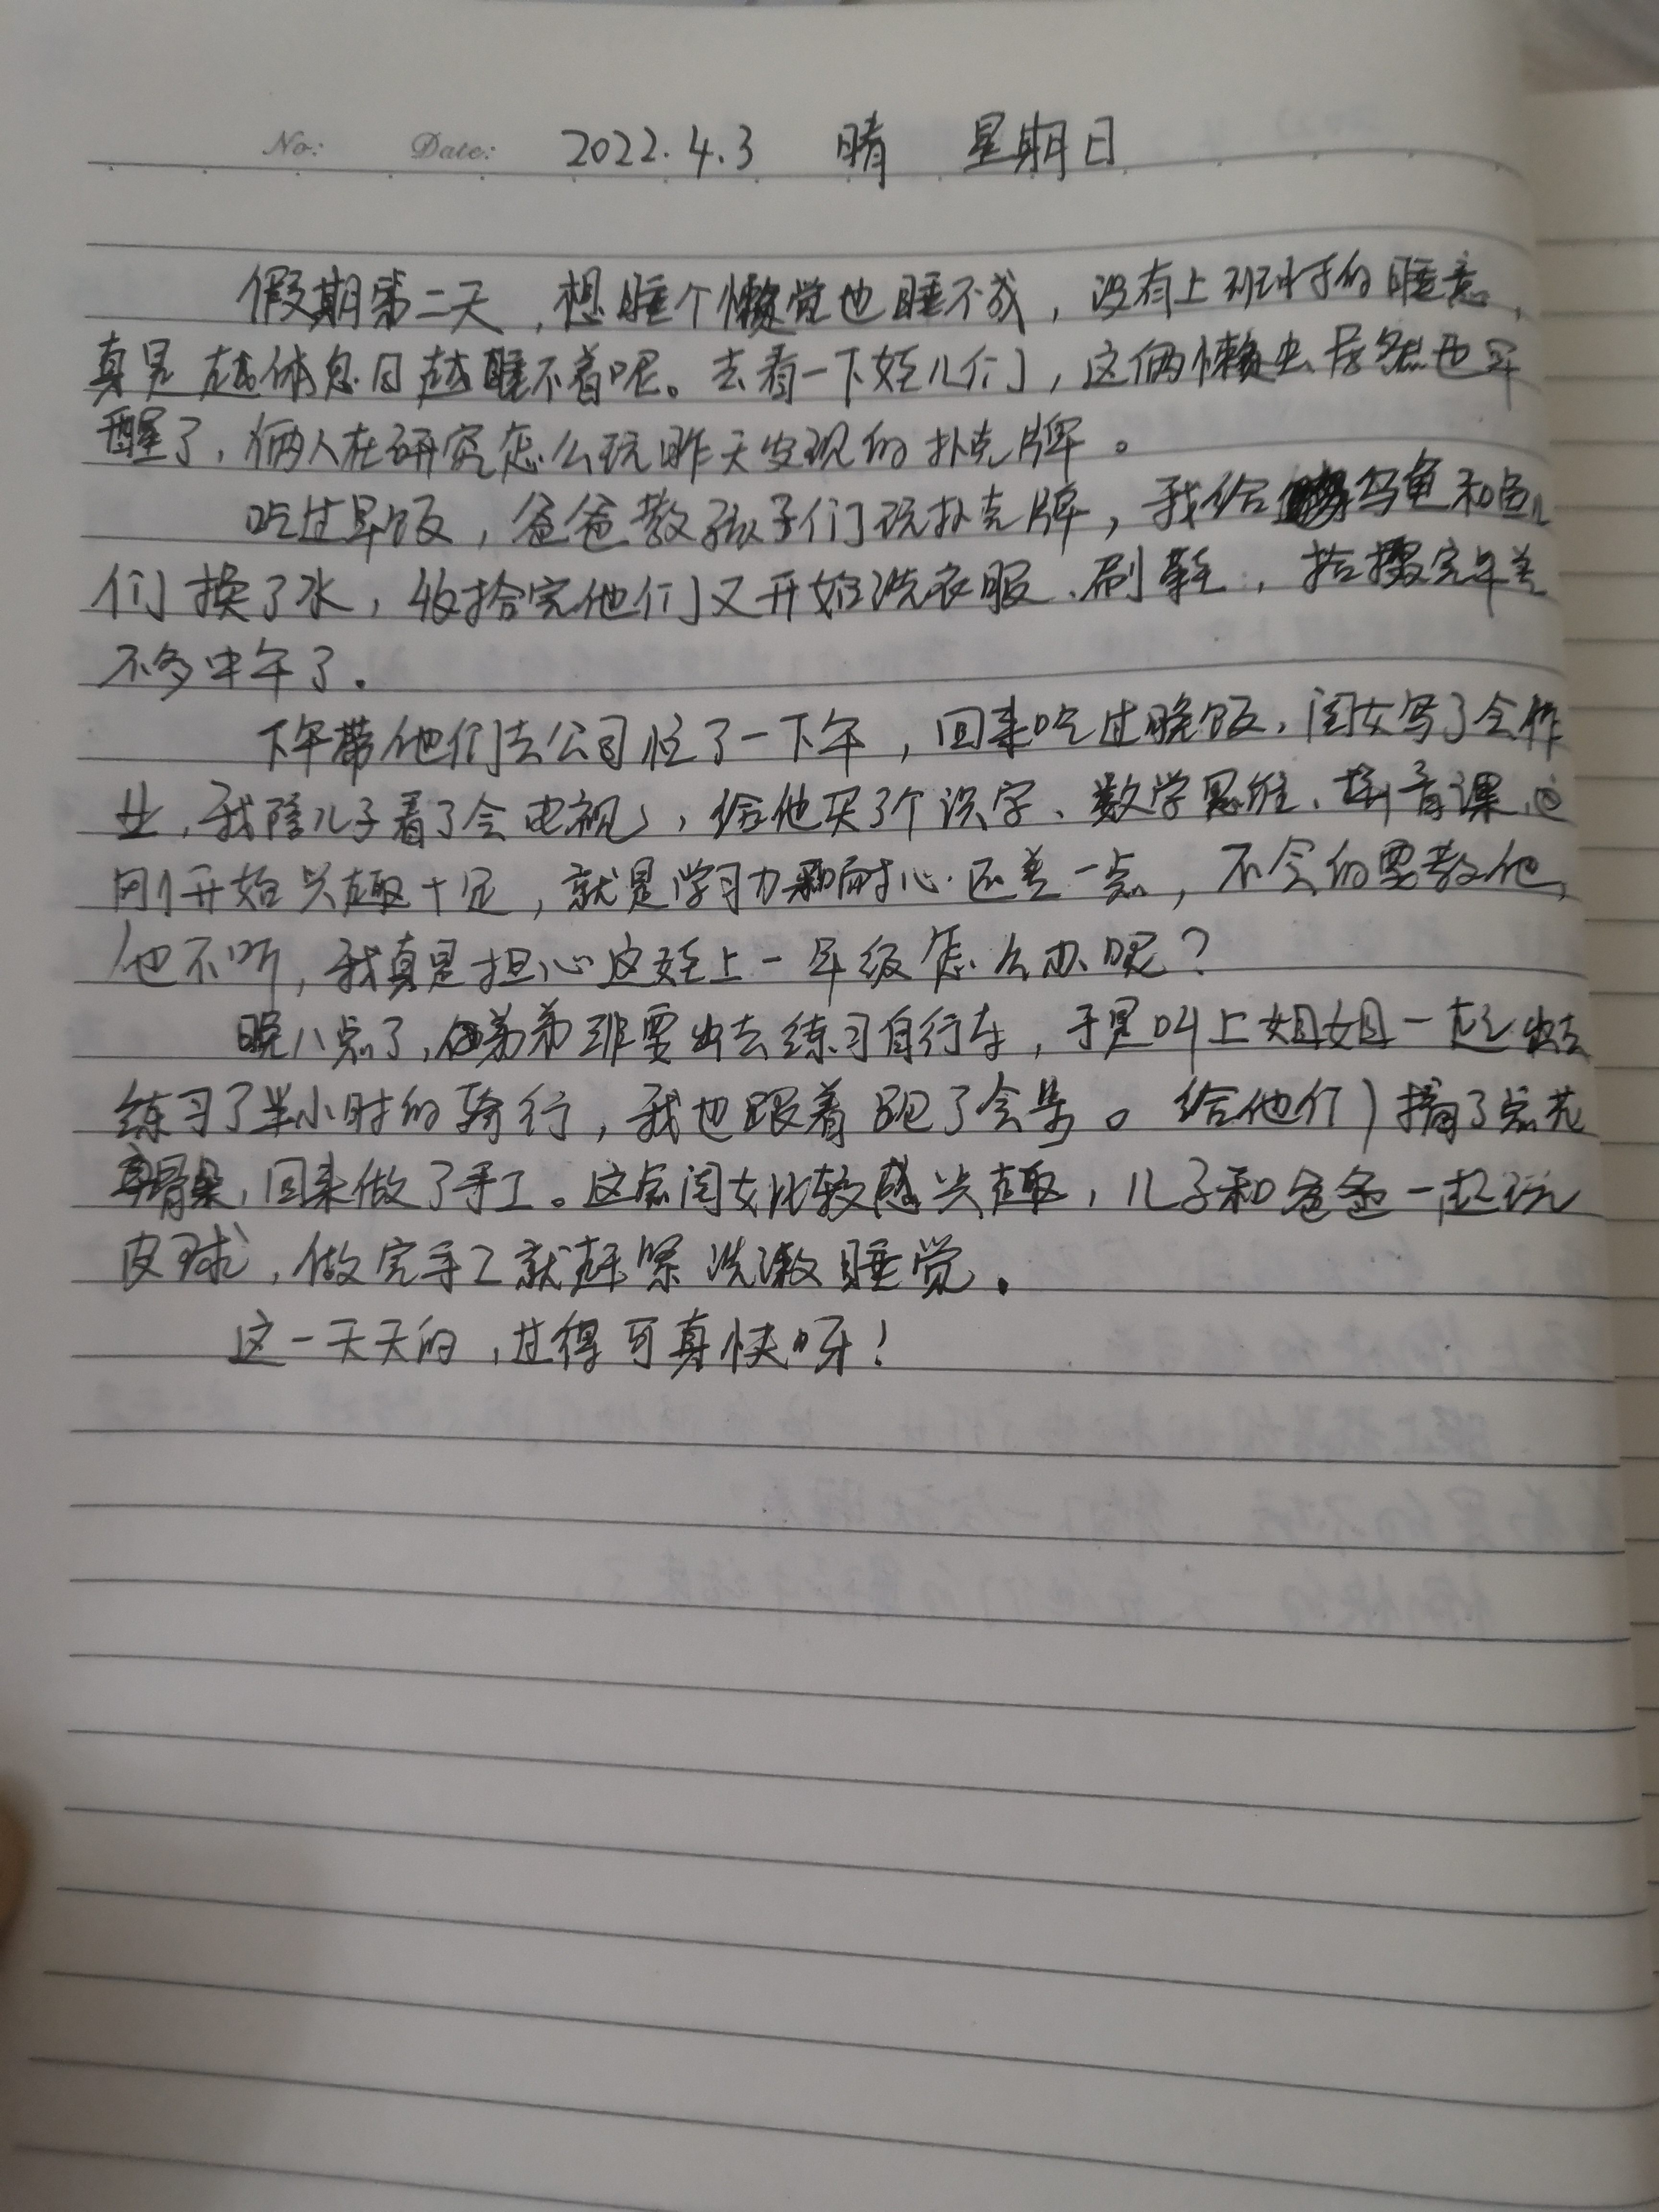 No: Date: 2022.4.3 晴 星期日
假期第二天，想睡个懒觉也睡不成，没有上班时的睡意，
真是越休息日越睡不着呢。去看一下娃儿们，这俩懒虫居然也早
醒了，俩人在研究怎么玩昨天发现的扑克牌。
吃过早饭，爸爸教孩子们玩扑克牌，我给乌龟和鱼儿
们换了水，收拾完他们又开始洗衣服、刷鞋，拾掇完年差
不多中午了。
下午带他们去公司忙了一下午，回来吃过晚饭，闺女写了会作
业，我陪儿子看了会电视，给他买了个识字、数学思维、拼音课，这
刚开始兴趣十足，就是学习力和耐心还差一点，不会的要教他，
他不听，我真是担心这娃上一年级怎么办呢？
晚八点了，弟弟非要出去练习自行车，于是叫上姐姐一起出去
练习了半小时的骑行，我也跟着跑了会步。给他们摘了点花
骨朵，回来做了手工。这点闺女比较感兴趣，儿子和爸爸一起玩
皮球，做完手工就赶紧洗漱睡觉。
这一天天的，过得可真快呀！